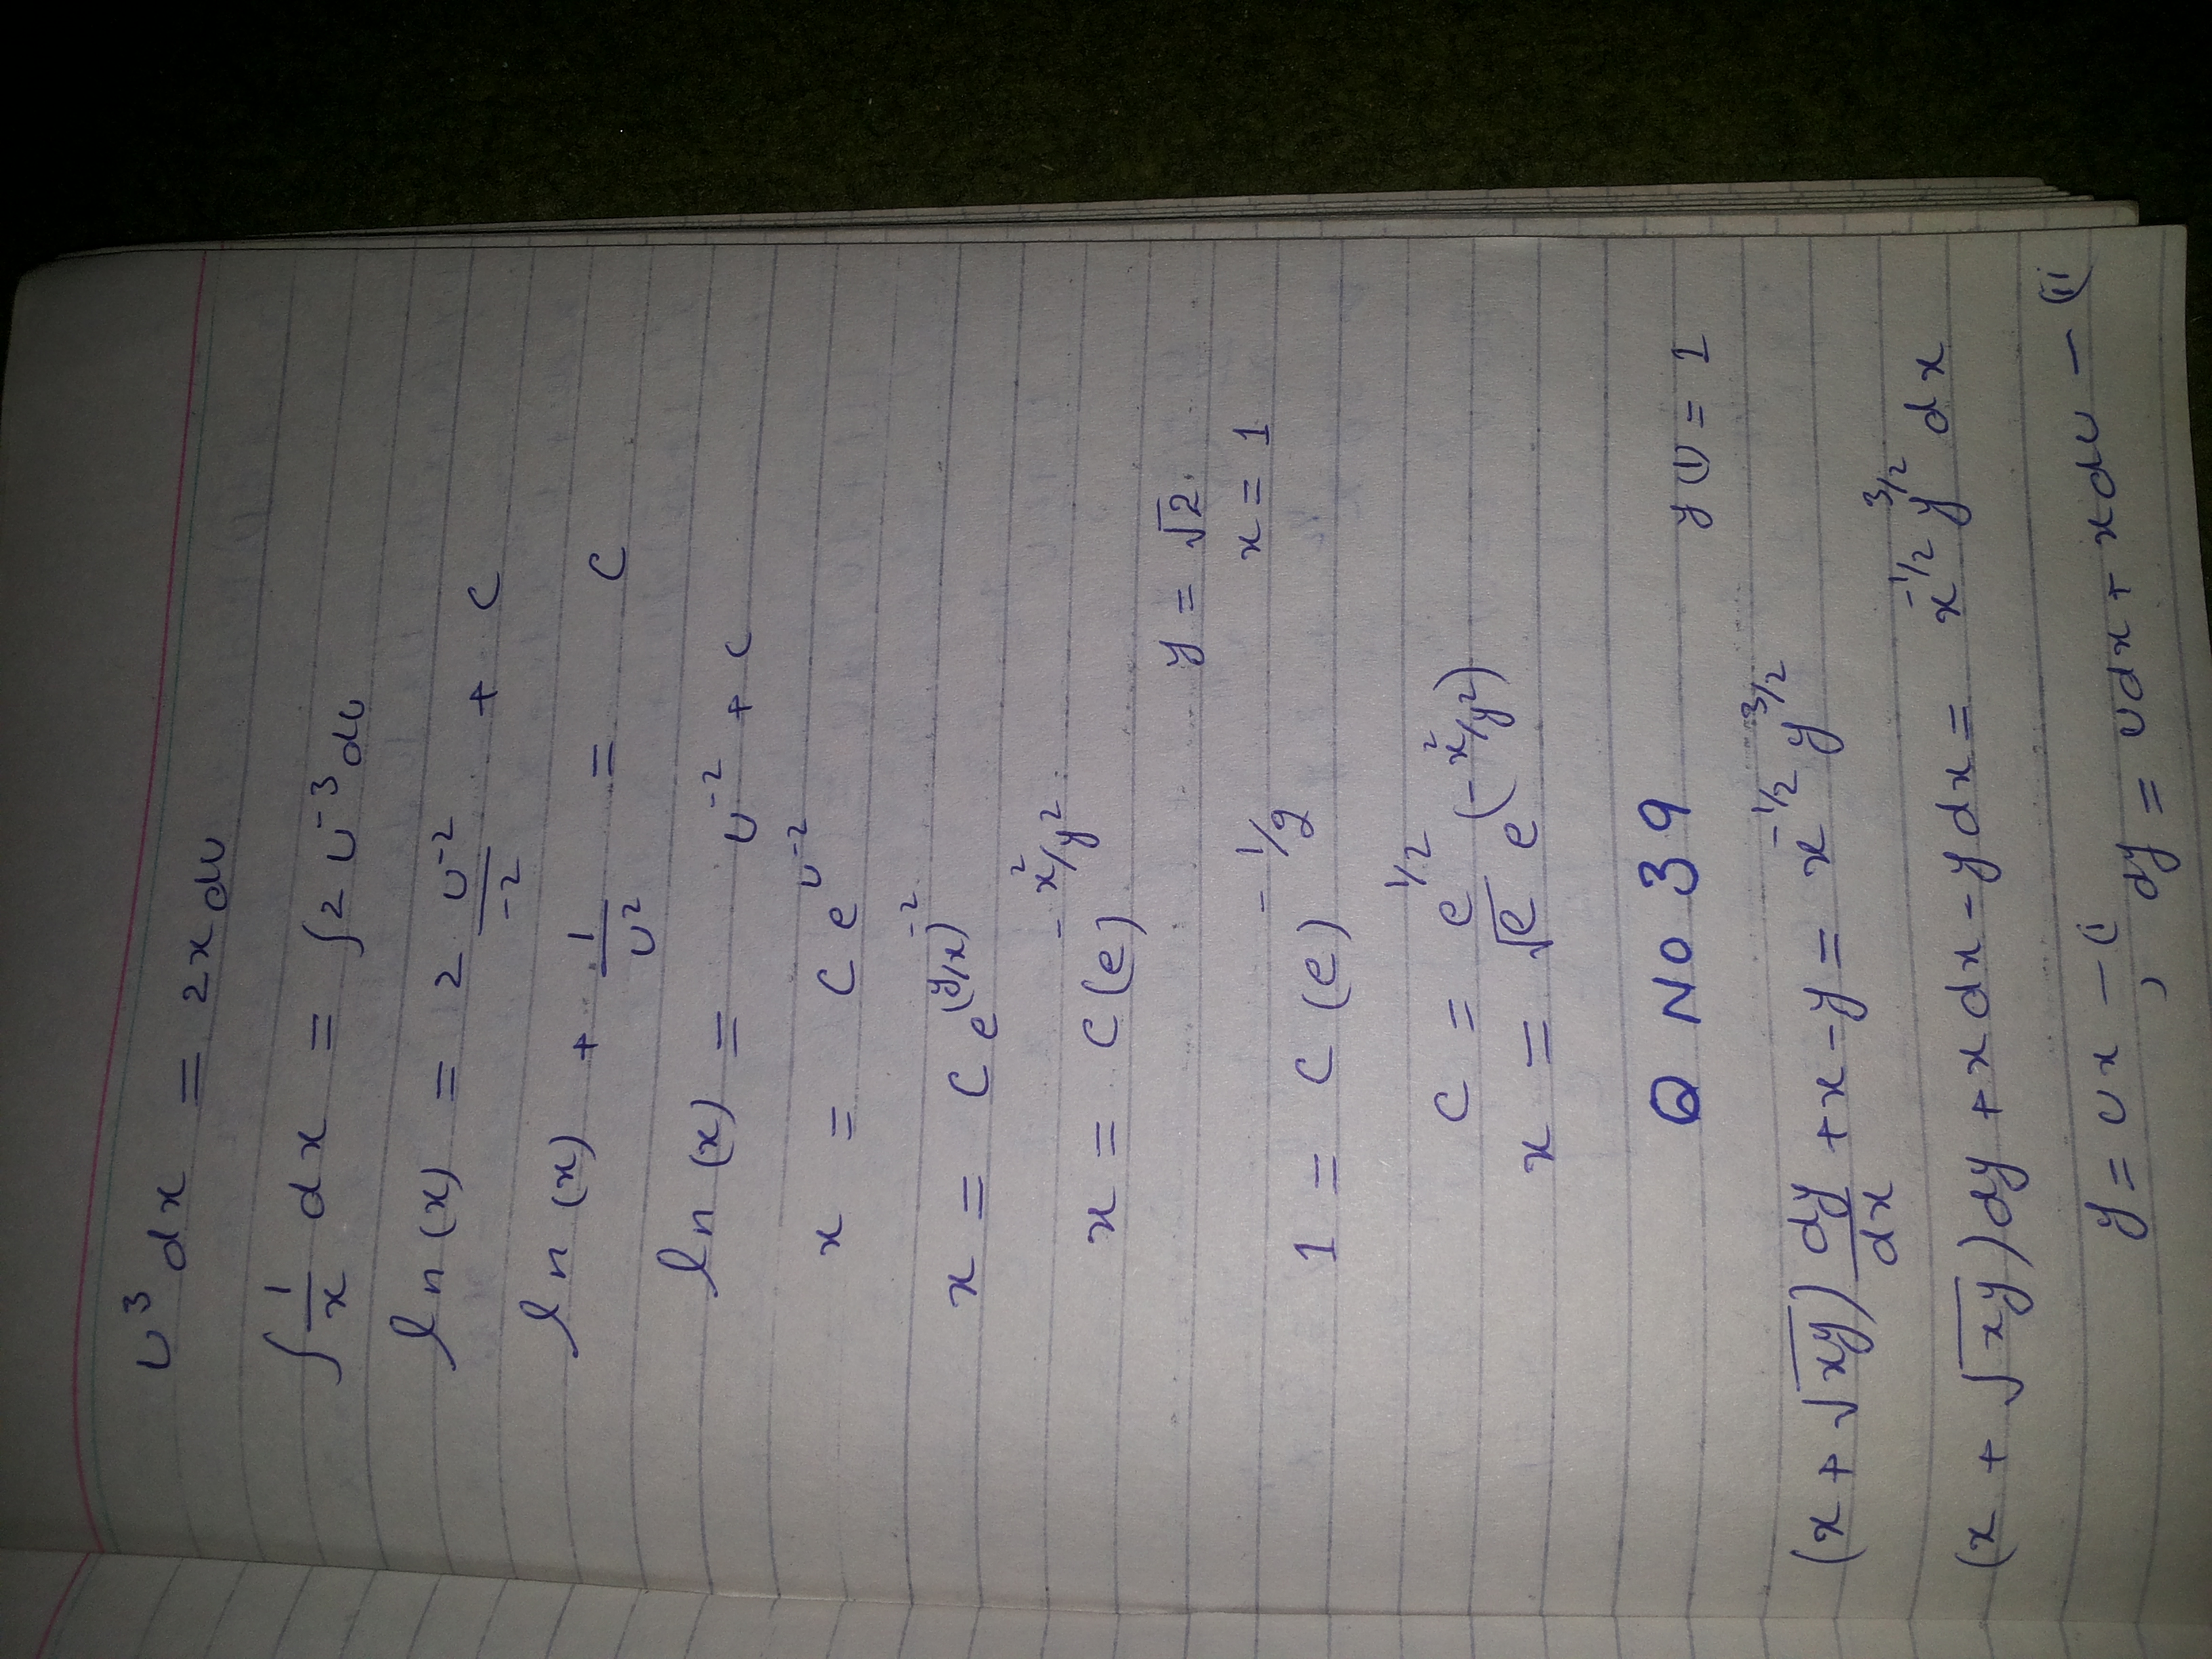 υ³ dx = 2x dυ
∫ 1/x dx = ∫ 2 υ⁻³ dυ
ln (x) = 2 υ⁻²/-2 + c
ln (x) + 1/υ² = c
ln (x) = υ⁻² + c
x = c e^υ⁻²
x = c e^(y/x)⁻²
x = c (e)^- x²/y²
y = √2
x = 1
1 = c (e)^- 1/2
c = e^1/2
x = √e e^(- x²/y²)
Q NO 39
y (1) = 1
(x + √xy) dy/dx + x - y = x^-1/2 y^3/2
(x + √xy) dy + x dx - y dx = x^-1/2 y^3/2 dx
y = υx - (i , dy = υdx + xdυ - (ii